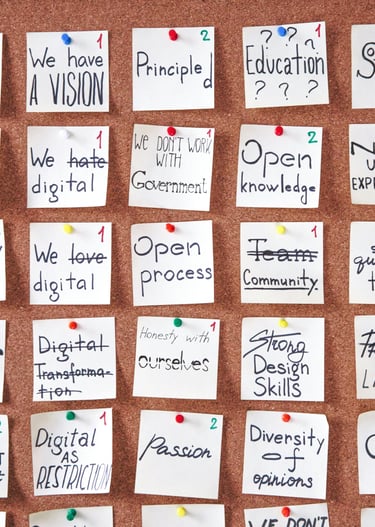 1
We have
A VISION
2
Principled
1
? ? ?
Education
? ? ?
1
We hate
digital
1
We DON'T WORK
WITH
Government
2
Open
knowledge
1
We love
digital
Open
process
1
Team
Community
Digital
Transforma-
tion
1
Honesty with
ourselves
Strong
Design
Skills
1
Digital
AS
RESTRICTION
2
Passion
Diversity
of
opinions
WE DON'T